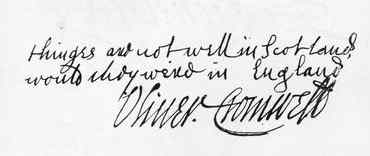 thinges are not well in Scotland,
would they weird in England
Oliver Cromwell